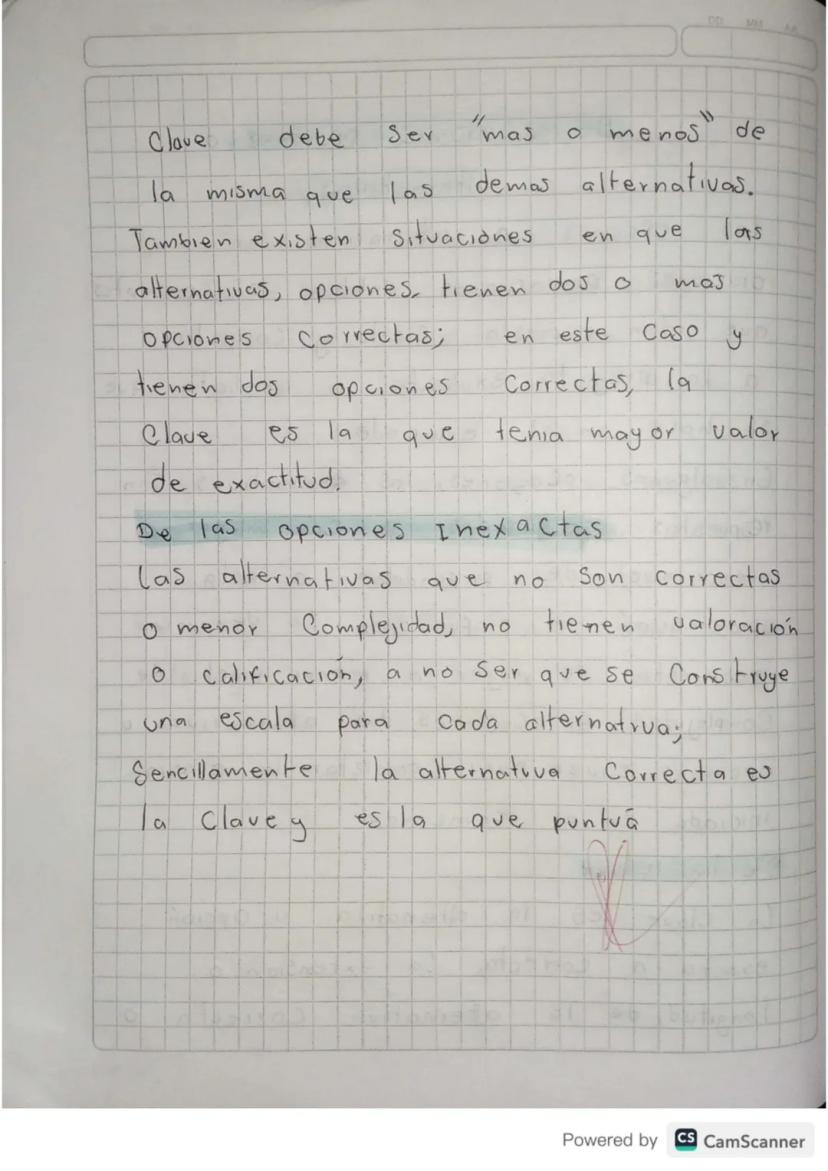 DD MM AA
Clave debe ser "mas o menos" de
la misma que las demas alternativas.
Tambien existen situaciones en que las
alternativas, opciones, tienen dos o mas
opciones correctas; en este caso y
tienen dos opciones correctas, la
Clave es la que tenia mayor valor
de exactitud.
De las opciones Inexactas
las alternativas que no son correctas
o menor Complejidad, no tienen valoración
o calificación, a no ser que se Construye
una escala para cada alternativa;
Sencillamente la alternativa Correcta es
la Clave y es la que puntuá
Powered by CS CamScanner